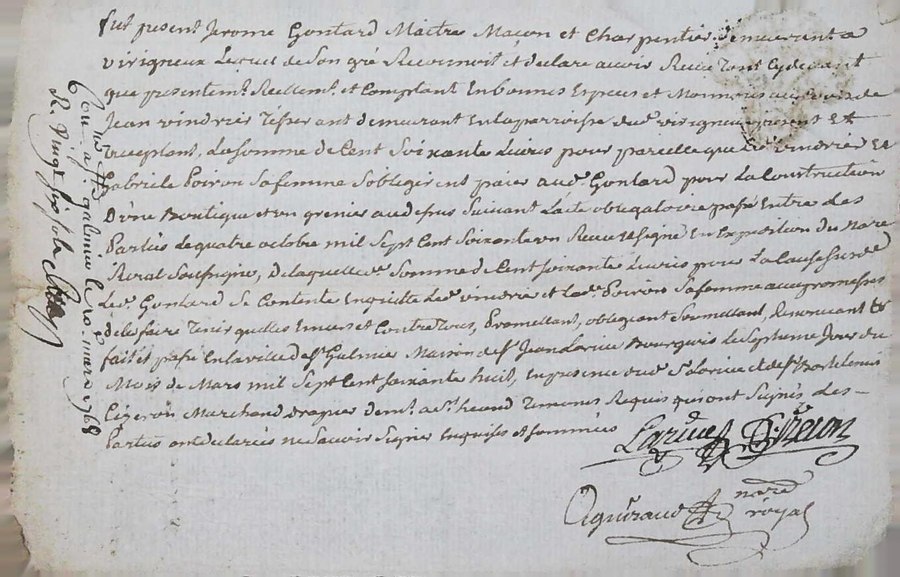 fut present Jerome Gontard Maitre Macon et Charpentier demeurant a
virigneux Lequel de Son gré Reconnoit et declare avoir Receu tant cydevant
que presentemt. Reellemt. et Comptant En bonnes Especes et Monnoies au cours de
Jean vindrier Tisserant demeurant En la parroisse dud. virigneux present Et
acceptant, La somme de Cent Soixante Livres pour pareille que led. vindrier Et
Gabriele Poiron Sa femme S'obligerent paier aud. Gontard pour La Construction
D'une Boutique et un grenier au dessus Suivant L'acte obligatoire passé Entre Les
Parties le quatre octobre mil Sept Cent Soixante un Receu et signé En Expedition du Nore.
Royal Soussigné, De laquelle de. Somme de Cent soixante Livres pour La Cause Susde.
Led. Gontard Se Contente En quitte Led. vindrier et Lad. Poiron Sa femme avec promesses
de les faire Tenir quittes Envers et Contre Tous, Promettant, obligeant Soumettant, Renoncant &c
fait et passé En la ville de St. Galmier Maison de Sr. Jean Larue Bourgeois Le Septieme Jour du
Mois de Mars mil Sept Cent Soixante huit, En presence dud. Sr. Larue et de Sr. Bartelemis
Marchand Drapier demt. a St. heand Temoins Requis qui ont Signés Les
Parties ont declarées ne Savoir Signer Enquises et Sommées
Larue
nore.
royal
a St. galmier le 10. mars 1768
R. Vingt